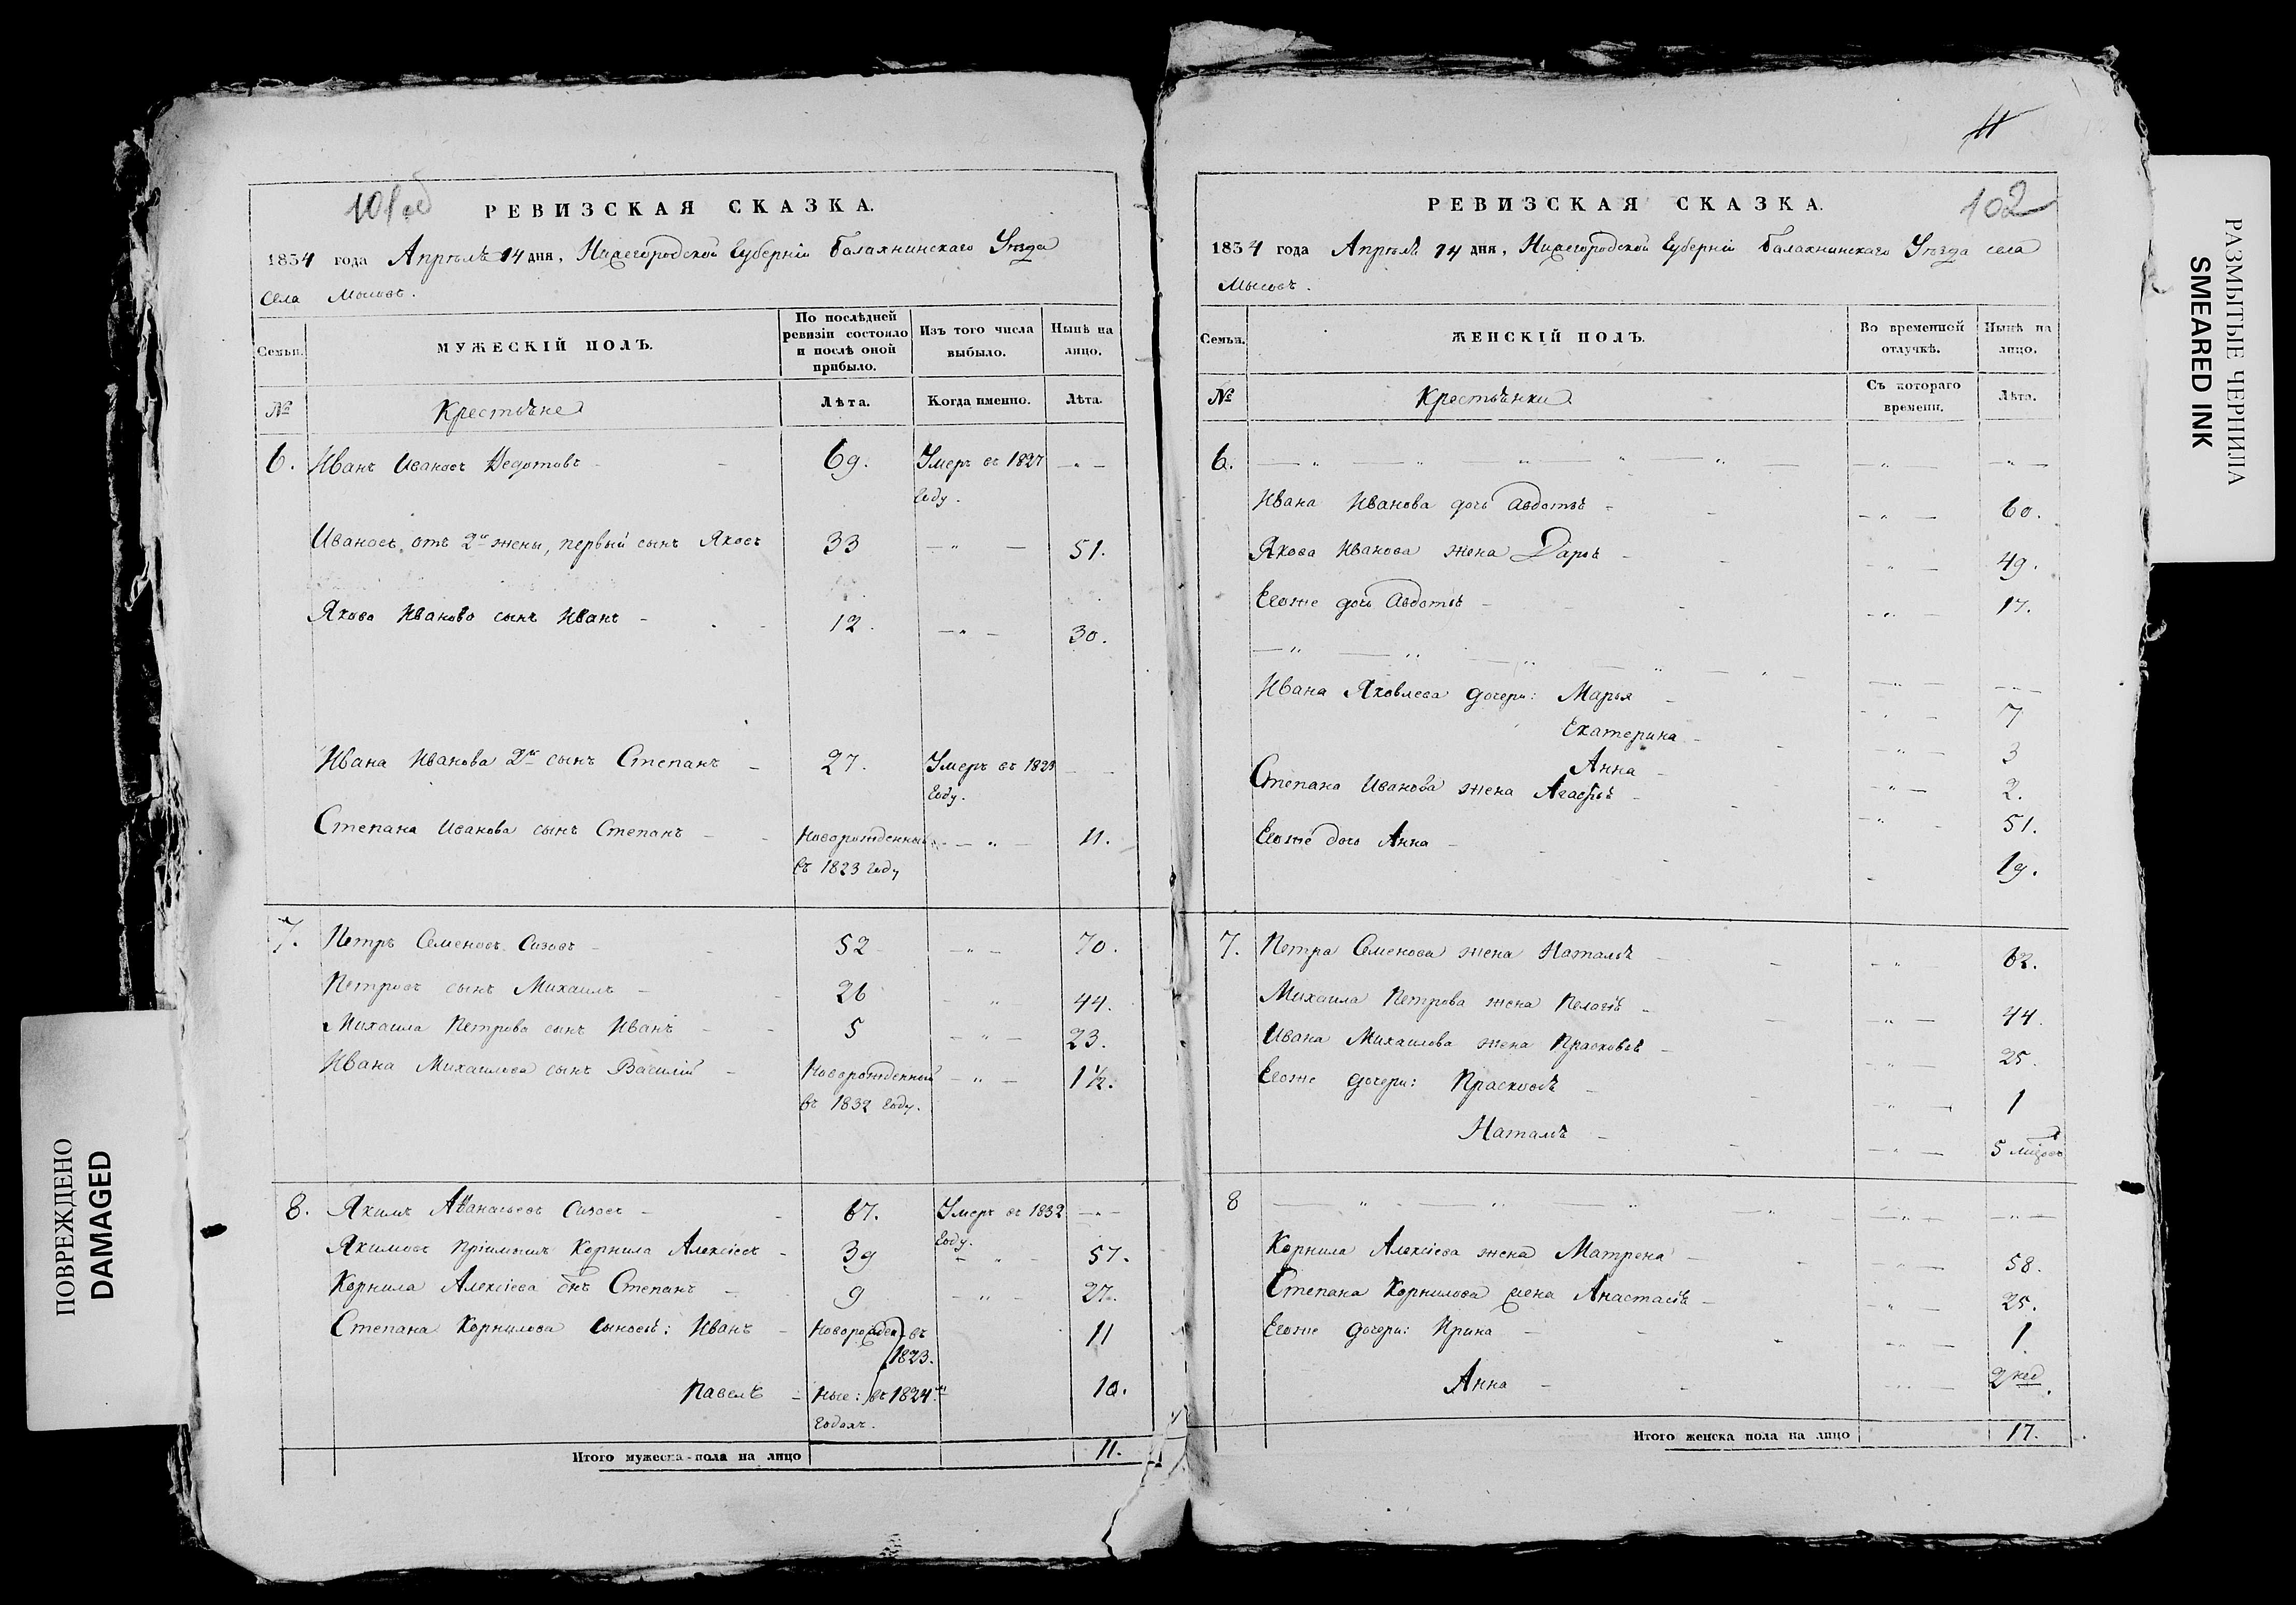 101 об
РЕВИЗСКАЯ СКАЗКА.
1834 года Апрѣлѣ 14 дня, Нижегородской Губерніи Балахнинскаго Уѣзда
села Мысовъ.
Семьи.
МУЖЕСКІЙ ПОЛЪ.
По послѣдней ревизіи состояло и послѣ оной прибыло.
Изъ того числа выбыло.
Нынѣ на лицо.
№
Крестьѣне
Лѣта.
Когда именно.
Лѣта.
6. Иванъ Ивановъ Ѳедотовъ - 69. Умеръ въ 1827 — „ —
году.
Ивановъ, отъ 2й жены, первый сынъ Яковъ 33 — „ — 51.
Якова Иванова сынъ Иванъ - 12. — „ — 30.
Ивана Иванова 2й сынъ Степанъ - 27. Умеръ въ 1823 — —
году.
Степана Иванова сынъ Степанъ - Новорожденный — „ — 11.
въ 1823 году
7. Петръ Семеновъ Сизовъ - 52 — „ — 70.
Петровъ сынъ Михаилъ - 26 — „ — 44.
Михаила Петрова сынъ Иванъ - 5 — „ — 23.
Ивана Михаилова сынъ Василій - Новорожденный — „ — 1½.
въ 1832 году.
8. Якимъ Аѳанасьевъ Сизовъ - 67. Умеръ въ 1832 — „ —
году.
Якимовъ пріимышъ Корнила Алексѣевъ - 39 — „ — 57.
Корнила Алексіева снъ Степанъ - 9 — „ — 27.
Степана Корнилова сыновья: Иванъ - Новорожден въ 11
1823.
Павелъ - ные: въ 1824м 10.
годахъ.
Итого мужеска пола на лицо 11.
11
102
РЕВИЗСКАЯ СКАЗКА.
1834 года Апрѣлѣ 14 дня, Нижегородской Губерніи Балахнинскаго Уѣзда села
Мысовъ.
Семьи.
ЖЕНСКІЙ ПОЛЪ.
Во временной отлучкѣ.
Нынѣ на лицо.
№
Крестьѣнки
Съ котораго времени.
Лѣта.
6. — „ — „ — „ — „ — „ — — „ — — „ —
Ивана Иванова дочь Авдотьѣ - — „ — 60.
Якова Иванова жена Дарьѣ - — „ — 49.
Егоже дочь Авдотьѣ - — „ — 17.
— „ — „ — „ — „ — „ —
Ивана Яковлева дочери: Марья - — „ — 7
Екатерина - — „ — 3
Анна - — „ — 2.
Степана Иванова жена Агафьѣ - — „ — 51.
Егоже дочь Анна - 19.
7. Петра Семенова жена Натальѣ - — „ 62.
Михаила Петрова жена Пелагіѣ - — „ — 44.
Ивана Михаилова жена Прасковьѣ - — „ — 25.
Егоже дочери: Прасковьѣ - — „ — 1
Натальѣ - — „ — 5 мцовъ
8 — „ — „ — „ — „ — — „ — — „ —
Корнила Алексіева жена Матрена - — „ — 58.
Степана Корнилова жена Анастасіѣ - „ — 25.
Егоже дочери: Ирина - — „ — 1.
Анна - — „ — 2 нед.
Итого женска пола на лицо 17.
РАЗМЫТЫЕ ЧЕРНИЛА
SMEARED INK
ПОВРЕЖДЕНО
DAMAGED